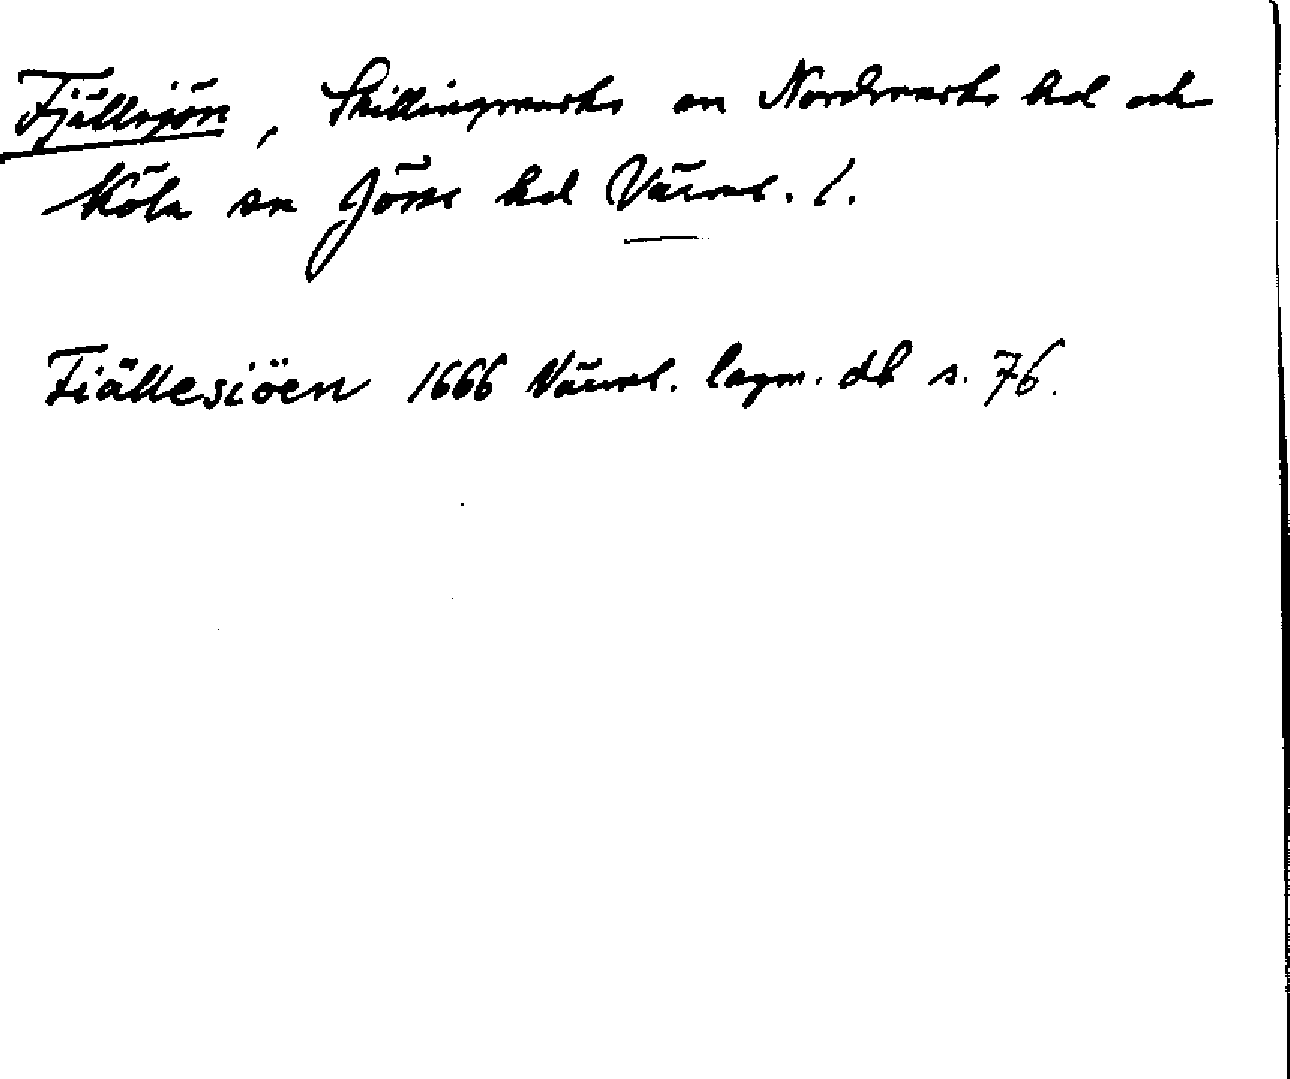 Fjällsjön, Skillingmarks sn Nordmarks hd och
Köla sn Jösse hd Värml. l.
Fiällesiöen 1666 Värml. lagm. db s. 76.